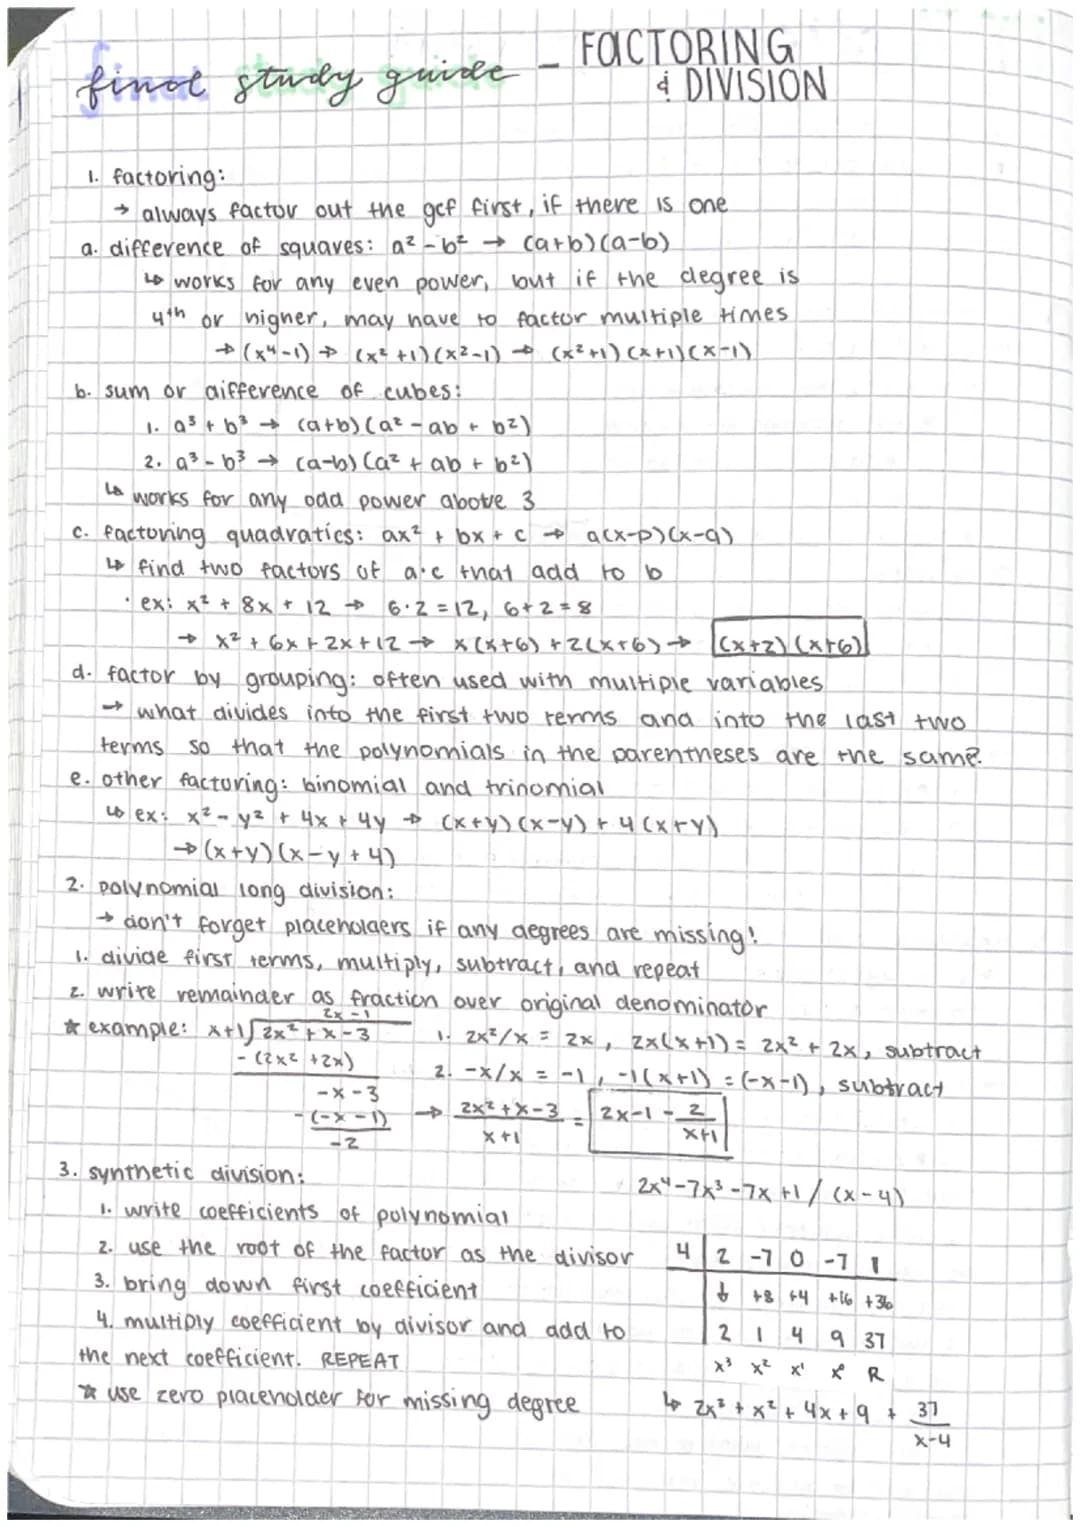 final study guide - FACTORING
& DIVISION
1. factoring:
→ always factor out the gcf first, if there is one
a. difference of squares: a² - b² → (a+b)(a-b)
↳ works for any even power, but if the degree is
4th or higher, may have to factor multiple times
→ (x⁴-1) → (x²+1)(x²-1) → (x²+1)(x+1)(x-1)
b. sum or difference of cubes:
1. a³ + b³ → (a+b)(a² - ab + b²)
2. a³ - b³ → (a-b)(a² + ab + b²)
↳ works for any odd power above 3
c. factoring quadratics: ax² + bx + c → a(x-p)(x-q)
↳ find two factors of a·c that add to b
· ex: x² + 8x + 12 → 6·2=12, 6+2=8
→ x² + 6x + 2x + 12 → x(x+6) + 2(x+6) → (x+2)(x+6)
d. factor by grouping: often used with multiple variables
→ what divides into the first two terms and into the last two
terms so that the polynomials in the parentheses are the same?
e. other factoring: binomial and trinomial
↳ ex: x² - y² + 4x + 4y → (x+y)(x-y) + 4(x+y)
→ (x+y)(x-y+4)
2. polynomial long division:
→ don't forget placeholders if any degrees are missing!
1. divide first terms, multiply, subtract, and repeat
2. write remainder as fraction over original denominator
2x -1
* example: x+1 √ 2x² + x - 3 1. 2x²/x = 2x, 2x(x+1) = 2x² + 2x, subtract
- (2x² + 2x) 2. -x/x = -1, -1(x+1) = (-x-1), subtract
-x - 3
-(-x - 1) → 2x²+x-3 / x+1 = 2x-1 - 2 / x+1
-2
3. synthetic division:
2x⁴-7x³-7x+1 / (x-4)
1. write coefficients of polynomial
2. use the root of the factor as the divisor 4 | 2 -7 0 -7 1
3. bring down first coefficient ↓ +8 +4 +16 +36
4. multiply coefficient by divisor and add to 2 1 4 9 37
the next coefficient. REPEAT x³ x² x¹ x⁰ R
* use zero placeholder for missing degree ↳ 2x³ + x² + 4x + 9 + 37
x-4